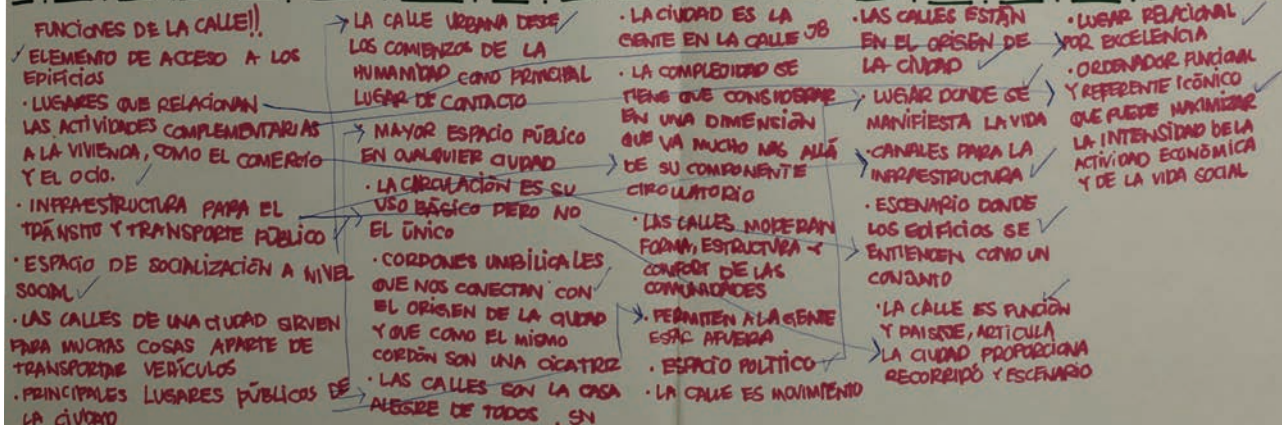 FUNCIONES DE LA CALLE!!
✓ ELEMENTO DE ACCESO A LOS
EDIFICIOS
· LUGARES QUE RELACIONAN
LAS ACTIVIDADES COMPLEMENTARIAS
A LA VIVIENDA, COMO EL COMERCIO
Y EL OCIO. ✓
· INFRAESTRUCTURA PARA EL
TRÁNSITO Y TRANSPORTE PÚBLICO ✓
· ESPACIO DE SOCIALIZACIÓN A NIVEL
SOCIAL ✓
· LAS CALLES DE UNA CIUDAD SIRVEN
PARA MUCHAS COSAS APARTE DE
TRANSPORTAR VEHÍCULOS
· PRINCIPALES LUGARES PÚBLICOS DE
LA CIUDAD
LA CALLE URBANA DESDE ✓
LOS COMIENZOS DE LA
HUMANIDAD COMO PRINCIPAL
LUGAR DE CONTACTO
· MAYOR ESPACIO PÚBLICO
EN CUALQUIER CIUDAD
· LA CIRCULACIÓN ES SU
USO BÁSICO PERO NO
EL ÚNICO
· CORDONES UMBILICALES
QUE NOS CONECTAN CON ✓
EL ORIGEN DE LA CIUDAD
Y QUE COMO EL MISMO
CORDÓN SON UNA CICATRIZ
· LAS CALLES SON LA CASA
ALEGRE DE TODOS . SN
· LA CIUDAD ES LA
GENTE EN LA CALLE JB
· LA COMPLEJIDAD SE
TIENE QUE CONSIDERAR
EN UNA DIMENSIÓN
QUE VA MUCHO MÁS ALLÁ
DE SU COMPONENTE
CIRCULATORIO
· LAS CALLES MODERAN
FORMA, ESTRUCTURA Y
CONFORT DE LAS
COMUNIDADES
· PERMITEN A LA GENTE
AFUERA
· ESPACIO POLÍTICO ✓
· LA CALLE ES MOVIMIENTO
· LAS CALLES ESTÁN
EN EL ORIGEN DE
LA CIUDAD ✓
· LUGAR DONDE SE
MANIFIESTA LA VIDA
· CANALES PARA LA
INFRAESTRUCTURA ✓
· ESCENARIO DONDE
LOS EDIFICIOS SE ✓
ENTIENDEN COMO UN
CONJUNTO
· LA CALLE ES FUNCIÓN ✓
Y PAISAJE, ARTICULA
LA CIUDAD PROPORCIONA
RECORRIDO Y ESCENARIO
· LUGAR RELACIONAL ✓
POR EXCELENCIA
· ORDENADOR FUNCIONAL
Y REFERENTE ICÓNICO
QUE PUEDE MAXIMIZAR ✓
LA INTENSIDAD DE LA
ACTIVIDAD ECONÓMICA
Y DE LA VIDA SOCIAL